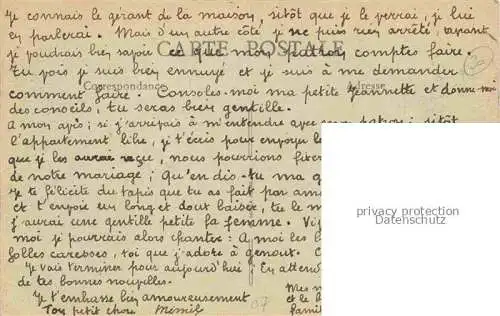 Je connais le gérant de la maison, sitôt que je le verrai, je lui
en parlerai. Mais d'un autre côté je ne puis rien arrêté, avant
je voudrais bien savoir ce que mon patron comptes faire.
CARTE POSTALE
Tu vois je suis bien ennuyé et je suis à me demander
Correspondance
Adresse
comment faire. Consoles-moi ma petite Jeannette et donne-moi
des conseils, tu seras bien gentille.
A mon avis; si j'arrivais à m'entendre avec patron; sitôt
l'appartement libre, je t'écris pour
que je les aurai reçue, nous pourrions fixer
de notre mariage; Qu'en dis-tu ma
Je te félicite du tapis que tu as fait par
et t'envoie un long et doux baiser, tu le
j'aurai une gentille petite femme.
moi je pourrais alors chanter: A moi les
folles caresses, toi que j'adore à genoux.
Je vais terminer pour aujourd'hui; En
de tes bonnes nouvelles.
Je t'embrasse bien amoureusement
Ton petit chou Mimil
Mes
et le
famil
07
privacy protection
Datenschutz